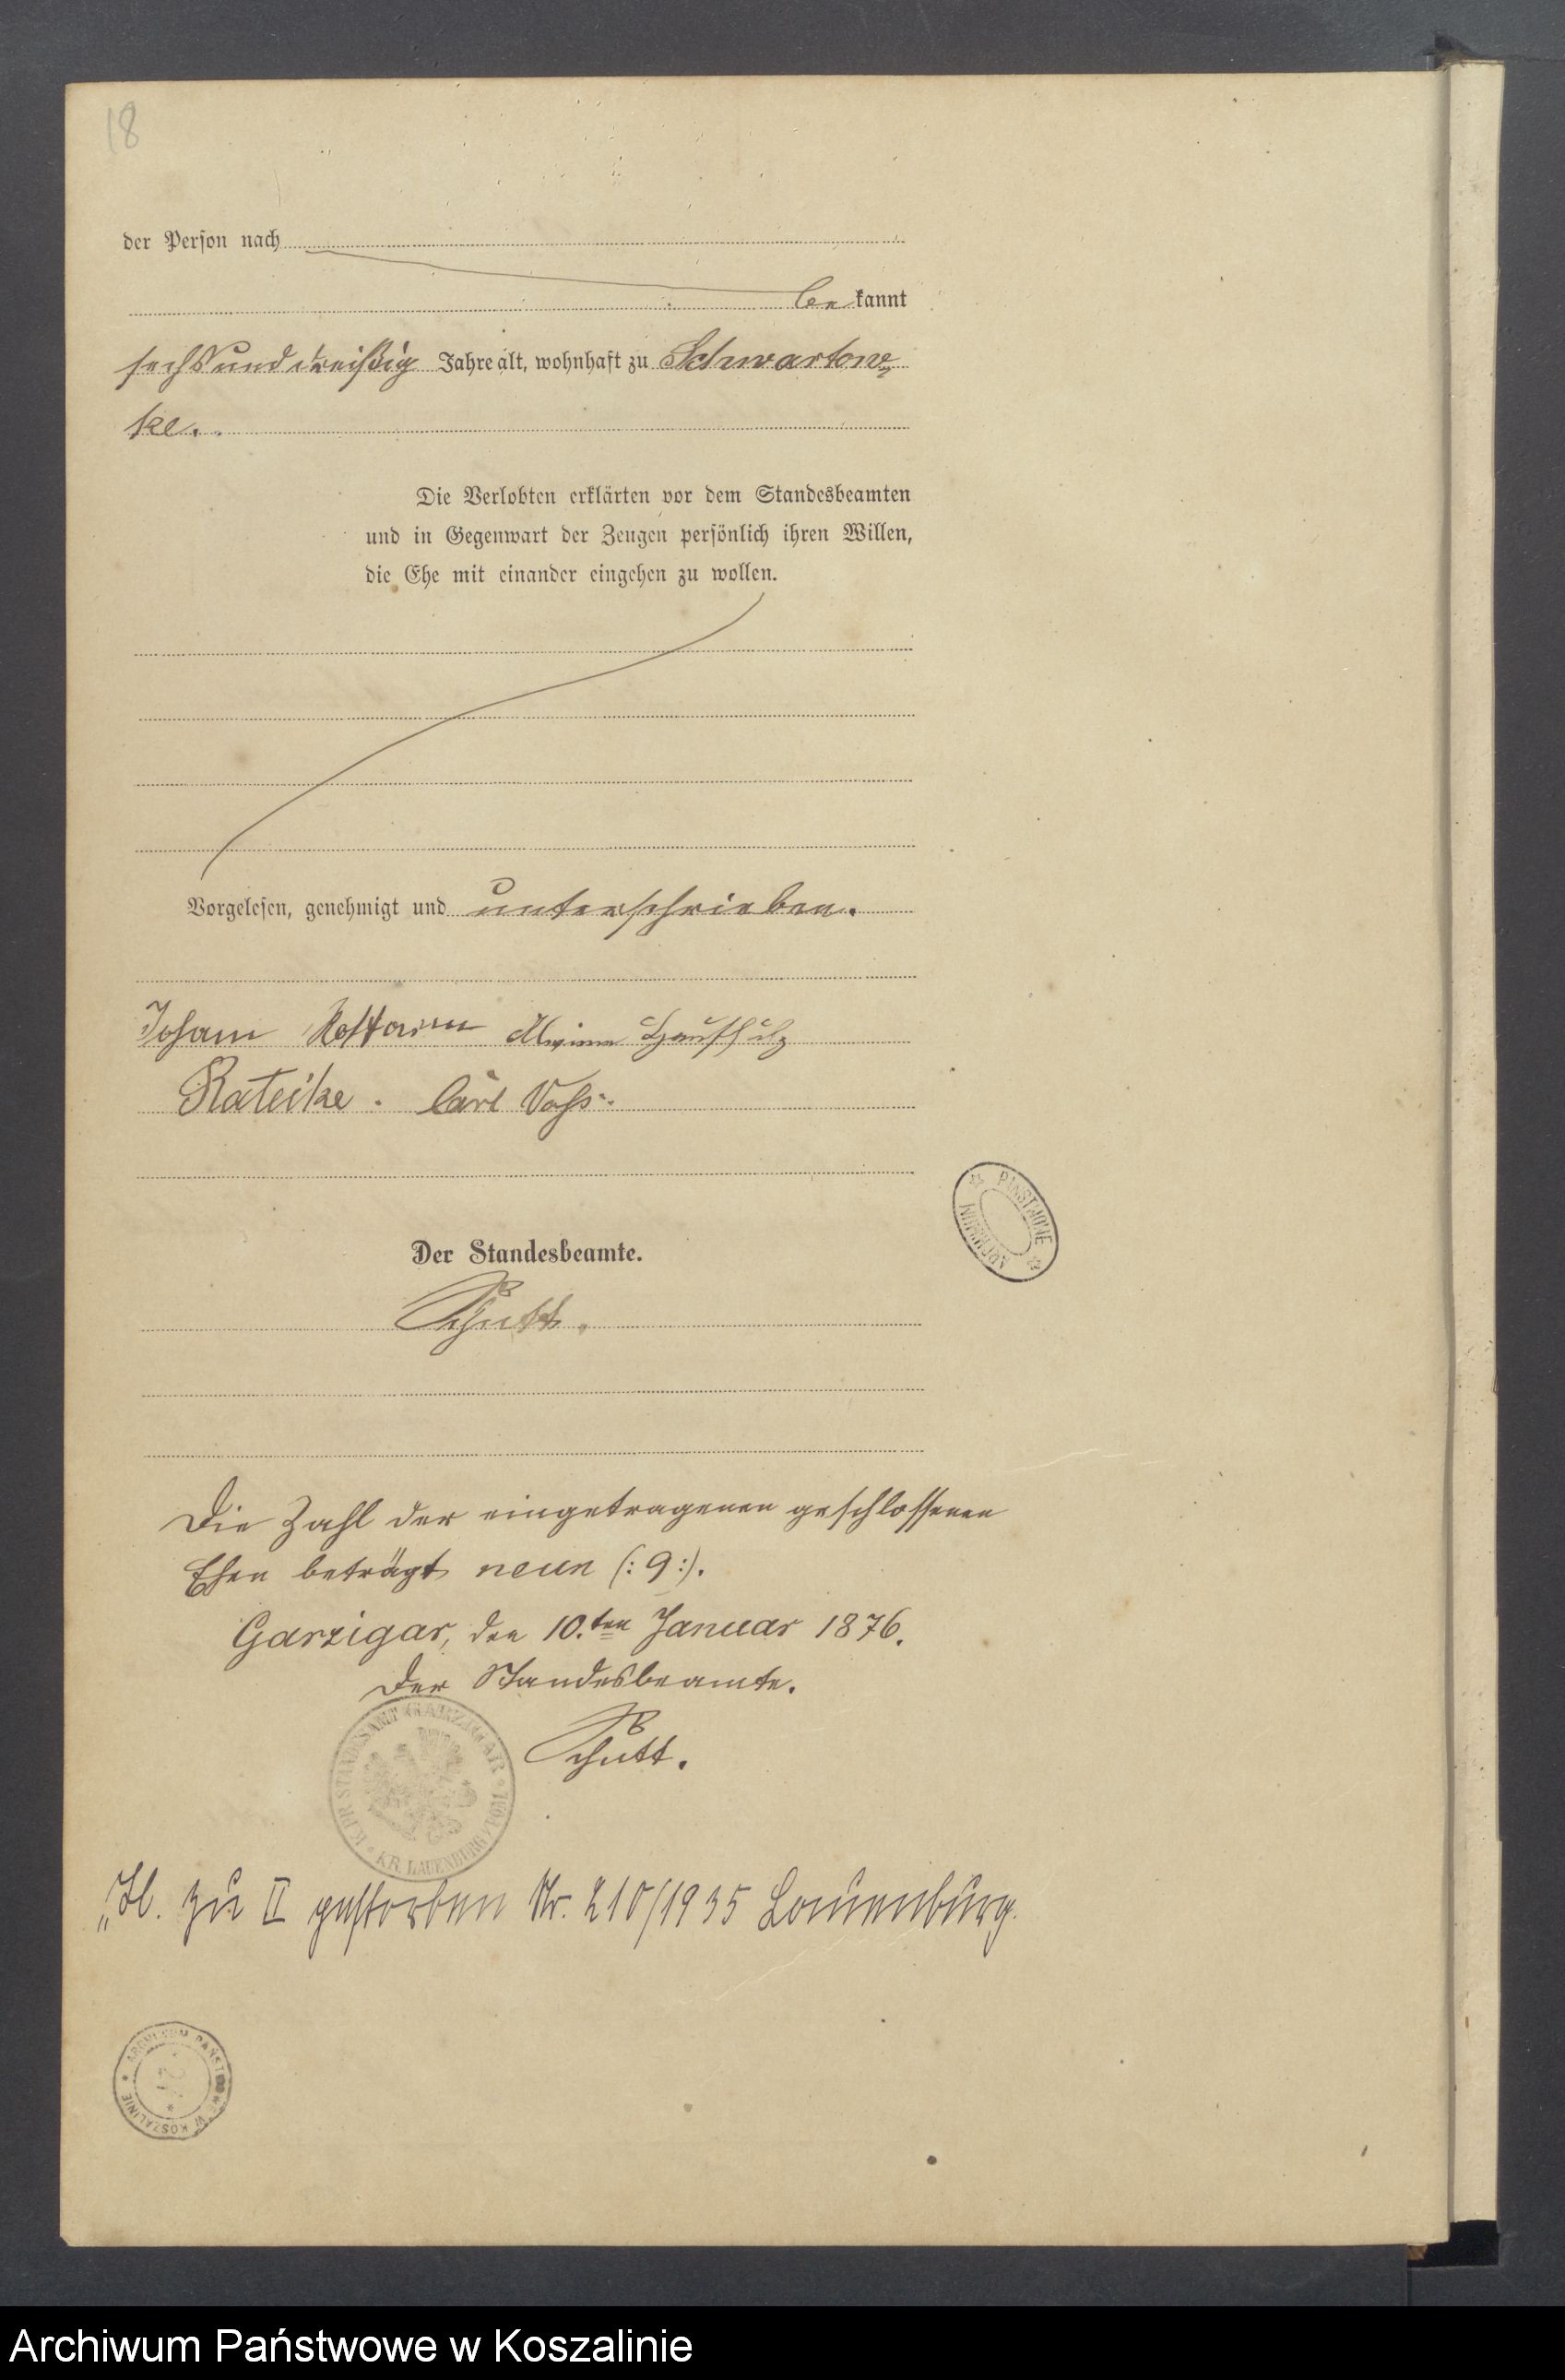 18
der Person nach
be kannt
sechsunddreißig Jahre alt, wohnhaft zu Schwartow-
ke.
Die Verlobten erklärten vor dem Standesbeamten
und in Gegenwart der Zeugen persönlich ihren Willen,
die Ehe mit einander eingehen zu wollen.
Vorgelesen, genehmigt und unterschrieben.
Johann
Rateike. Carl Voß.
PAŃSTWOWE ARCHIWUM
Der Standesbeamte.
Schutt.
Die Zahl der eingetragenen geschlossenen
Ehen beträgt neun (:9:).
Garzigar, den 10.ten Januar 1876.
Der Standesbeamte.
Schutt.
K. PR. STANDESAMT GARZIGAR KR. LAUENBURG i/POM.
zu II gestorben Nr. 210/1935 Lauenburg.
ARCHIWUM PAŃSTWOWE W KOSZALINIE
Archiwum Państwowe w Koszalinie